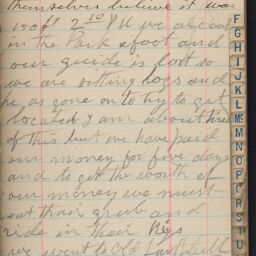 themselves believe it was
150 ft 2 10 P.M. we are out
in the Park afoot and
our guide is lost so
we are sitting logs and
he as gone on to try to get
located I am about tired
of this but we have paid
our money for five days
and to get the worth of
our money we must
eat thair grub and
ride in their Rigs
we went to Old
F
G
H
I
J
K
L
M
N
O
P
S
T
U